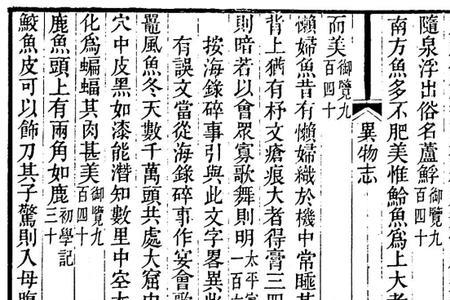 隨泉浮出俗名蘆御覽九百四十
南方魚多不肥美惟魚爲上大者
而美御覽九百四十
異物志
懶婦魚昔有懶婦織於機中常睡其
背上猶有杼文瘡痕大者得膏三四
則暗若以會眾寡歌舞則明太平一百
按海錄碎事引與此文字畧異此
有誤文當從海錄碎事作宴會歌
鼉風魚冬天數千萬頭共處大窟中
穴中皮黑如漆能潛知數里中空
化爲蝙蝠其肉甚美御覽九百四十
鹿魚頭上有兩角如鹿初學記三十
鮫魚皮可以飾刀其子驚則入母腹